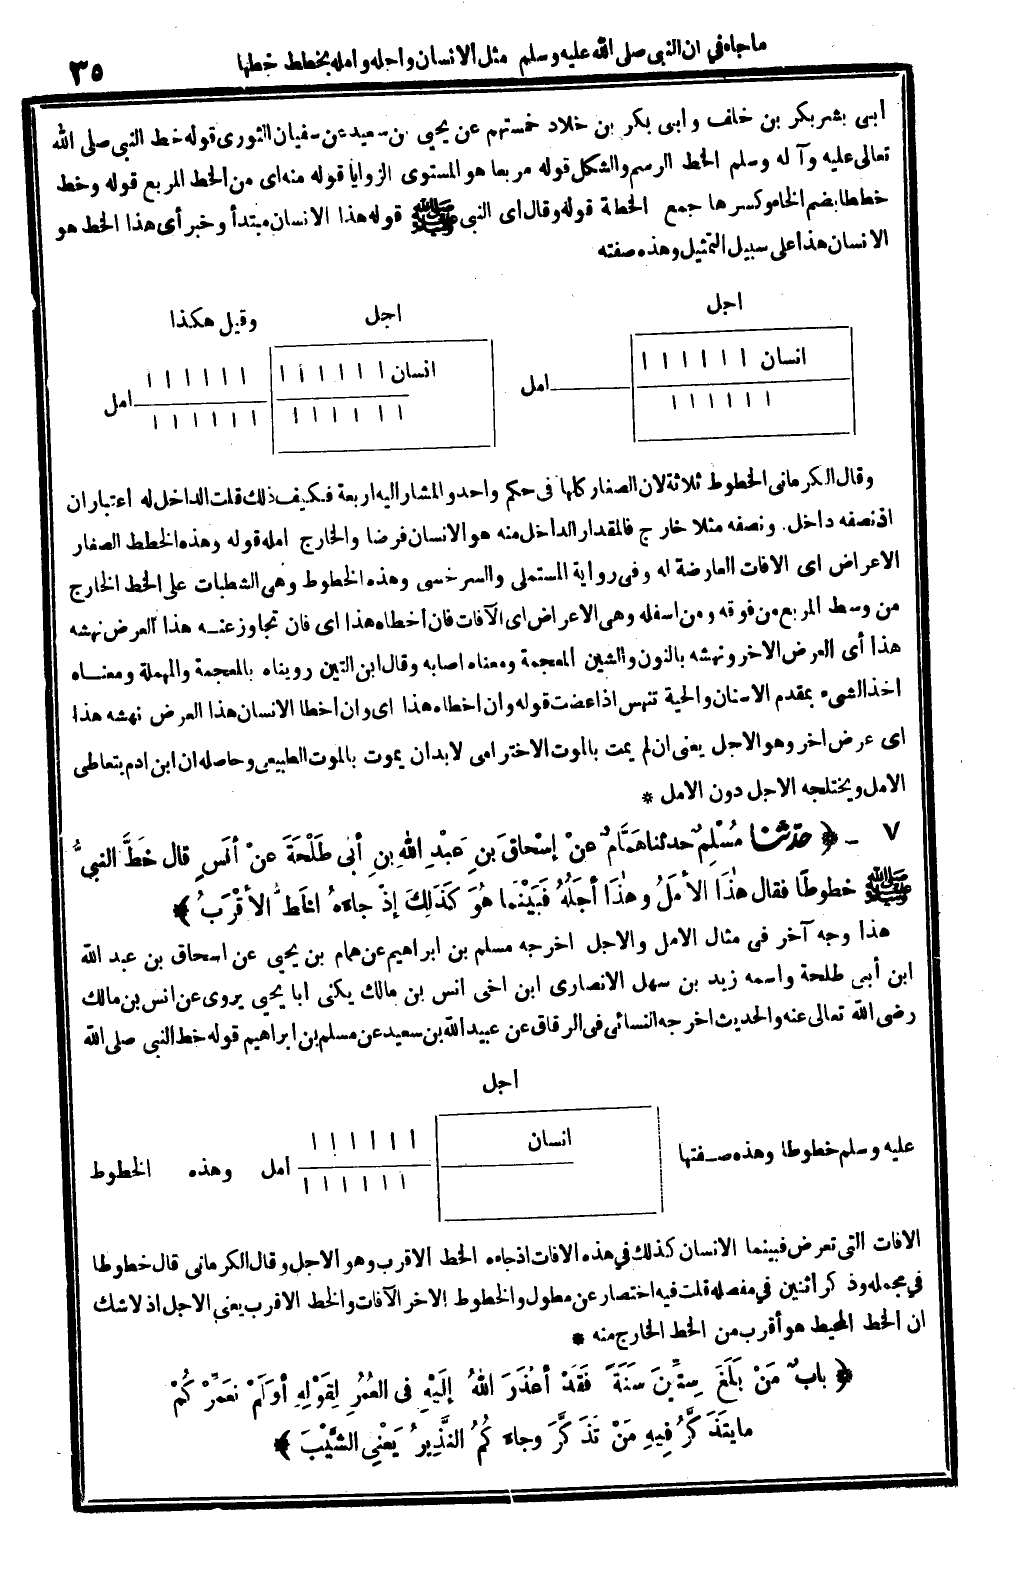 ما جاء في ان النبي صلى الله عليه وسلم مثل الانسان واجله وامله بخطط خطها
٣٥
أبى بشر بكر بن خلف وابى بكر بن خلاد خمستهم عن يحيى بن سعيد عن سفيان الثورى قوله خط النبي صلى الله
تعالى عليه وآ له وسلم الخط الرسم والشكل قوله مربعا هو المستوى الزوايا قوله منه اى من الخط المربع قوله وخط
خططا بضم الخاء وكسرها جمع الخطة قوله وقال اى النبي ﷺ قوله هذا الانسان مبتدأ وخبر أى هذا الخط هو
الانسان هذا على سبيل التمثيل وهذه صفته
اجل
انسان
امل
اجل
انسان
امل
وقيل هكذا
وقال الكرمانى الخطوط ثلاثة لان الصغار كلها فى حكم واحد والمشار اليه اربعة فكيف ذلك قلت الداخل له اعتباران
اذ نصفه داخل. ونصفه مثلا خارج فالمقدار الداخل منه هو الانسان فرضا والخارج امله قوله وهذه الخطط الصغار
الاعراض اى الافات العارضة له وفى رواية المستملى والسرخسى وهذه الخطوط وهى الشطبات على الخط الخارج
من وسط المربع من فوقه ومن اسفله وهى الاعراض اى الآفات فان أخطاه هذا اى فان تجاوز عنه هذا العرض نهشه
هذا أى العرض الاخر ونهشه بالنون والشين المعجمة ومعناه اصابه وقال ابن التين رويناه بالمعجمة والمهملة ومعناه
اخذ الشىء بمقدم الاسنان والحية تنهس اذا عضت قوله وان اخطاه هذا اى وان أخطا الانسان هذا العرض نهشه هذا
اى عرض اخر وهو الاجل يعنى ان لم يمت بالموت الاخترامى لابد ان يموت بالموت الطبيعى وحاصله ان ابن ادم يتعاطى
الامل ويختلجه الاجل دون الامل *
٧ - ﴿ حَدَّثَنَا مُسْلِمٌ حدثنا هَمَّامٌ عنْ إسْحاقَ بنِ عَبْدِ اللهِ بنِ أبى طَلْحَةَ عنْ أنَسٍ قال خَطَّ النبىُّ
ﷺ خطوطًا فقال هٰذَا الأمَلُ وهٰذَا أجَلُهُ فَبَيْنَما هُوَ كَذٰلِكَ إذْ جاءَهُ الخَطُّ الأقْرَبُ ﴾
هذا وجه آخر فى مثال الامل والاجل اخرجه مسلم بن ابراهيم عن همام بن يحيى عن اسحاق بن عبد الله
ابن أبى طلحة واسمه زيد بن سهل الانصارى ابن اخى انس بن مالك يكنى ابا يحيى يروى عن انس بن مالك
رضى الله تعالى عنه والحديث اخرجه النسائى فى الرقاق عن عبيد الله بن سعيد عن مسلم بن ابراهيم قوله خط النبى صلى الله
أجل
عليه وسلم خطوطا وهذه صفتها
انسان
امل وهذه الخطوط
الافات التى تعرض فبينما الانسان كذلك في هذه الافات اذ جاءه الخط الاقرب وهو الاجل وقال الكرمانى قال خطوطا
في مجمله وذكر اثنين في مفصله قلت فيه اختصار عن مطول والخطوط الاخر الآفات والخط الاقرب يعنى الاجل اذ لا شك
ان الخط المحيط هو أقرب من الخط الخارج منه *
﴿ بابٌ مَنْ بَلَغَ سِتِّينَ سَنَةً فَقَدْ أعْذَرَ اللهُ إلَيْهِ فى العُمُرِ لِقَوْلِهِ أوَلَمْ نُعَمِّرْكُمْ
ما يَتَذَكَّرُ فِيهِ مَنْ تَذَكَّرَ وجاءَكُمُ النَّذِيرُ يَعْنِى الشَّيْبَ ﴾